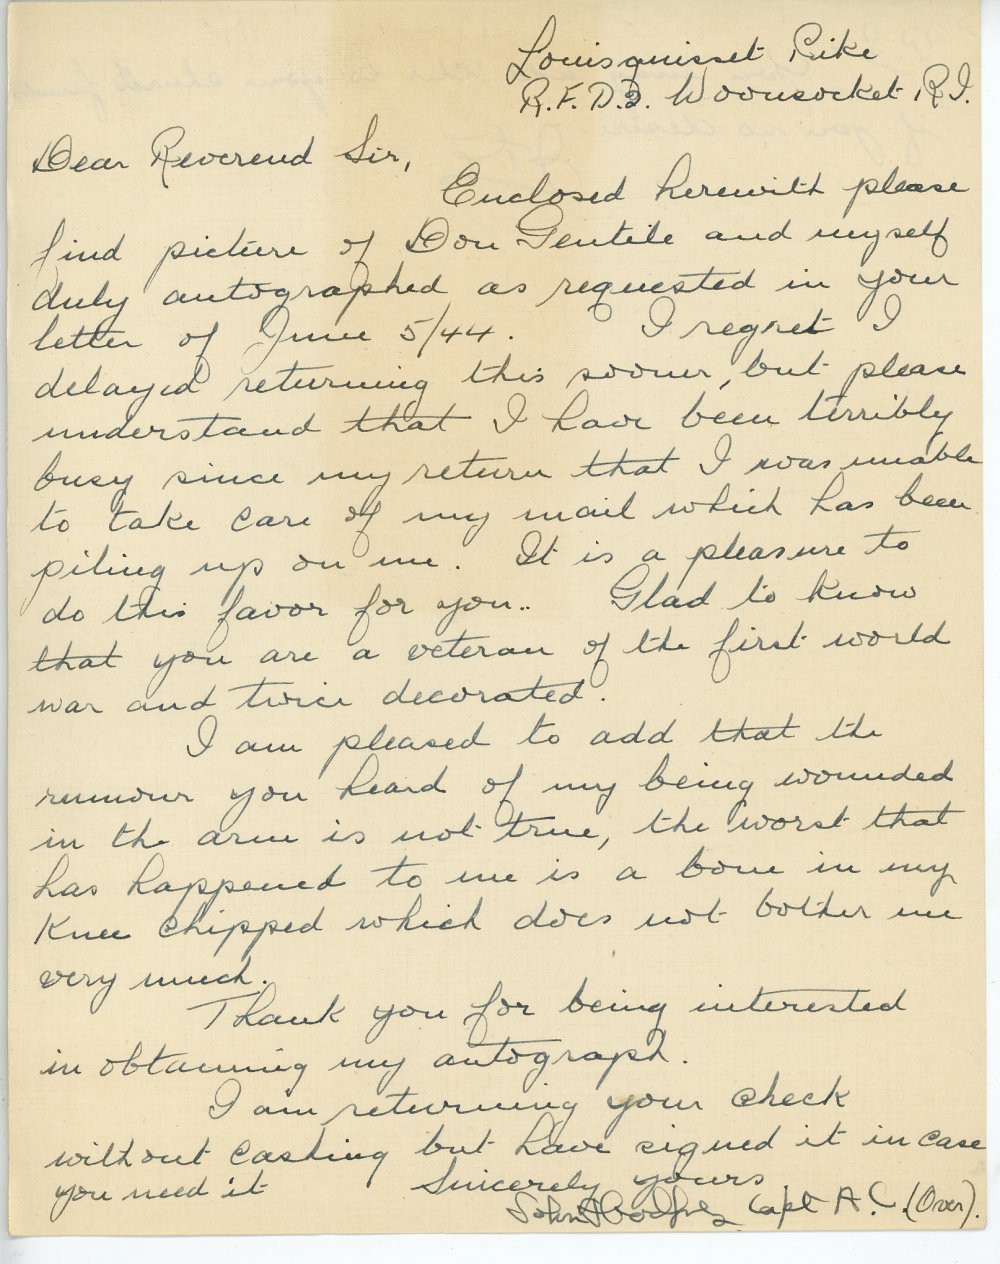 Louisquisset Pike
R.F.D.2. Woonsocket, R.I.
Dear Reverend Sir,
Enclosed herewith please
find picture of Don Gentile and myself
duly autographed as requested in your
letter of June 5/44. I regret I
delayed returning this sooner, but please
understand that I have been terribly
busy since my return that I was unable
to take care of my mail which has been
piling up on me. It is a pleasure to
do this favor for you.. Glad to know
that you are a veteran of the first world
war and twice decorated.
I am pleased to add that the
rumour you heard of my being wounded
in the arm is not true, the worst that
has happened to me is a bone in my
Knee chipped which does not bother me
very much.
Thank you for being interested
in obtaining my autograph.
I am returning your check
without cashing but have signed it in case
you need it Sincerely yours
John T Godfrey Capt A.C. (Over).